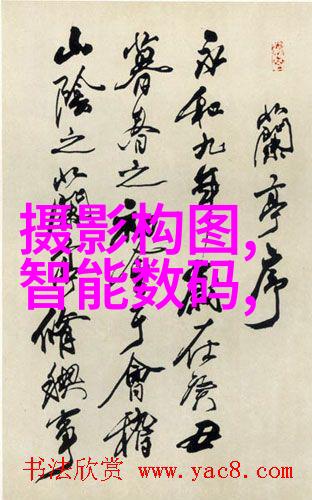 蘭亭序
永和九年歲在癸丑
暮春之初會于會稽
山陰之蘭亭脩禊事
摄影构图,
智能数码,
书法欣赏 www.yac8.com